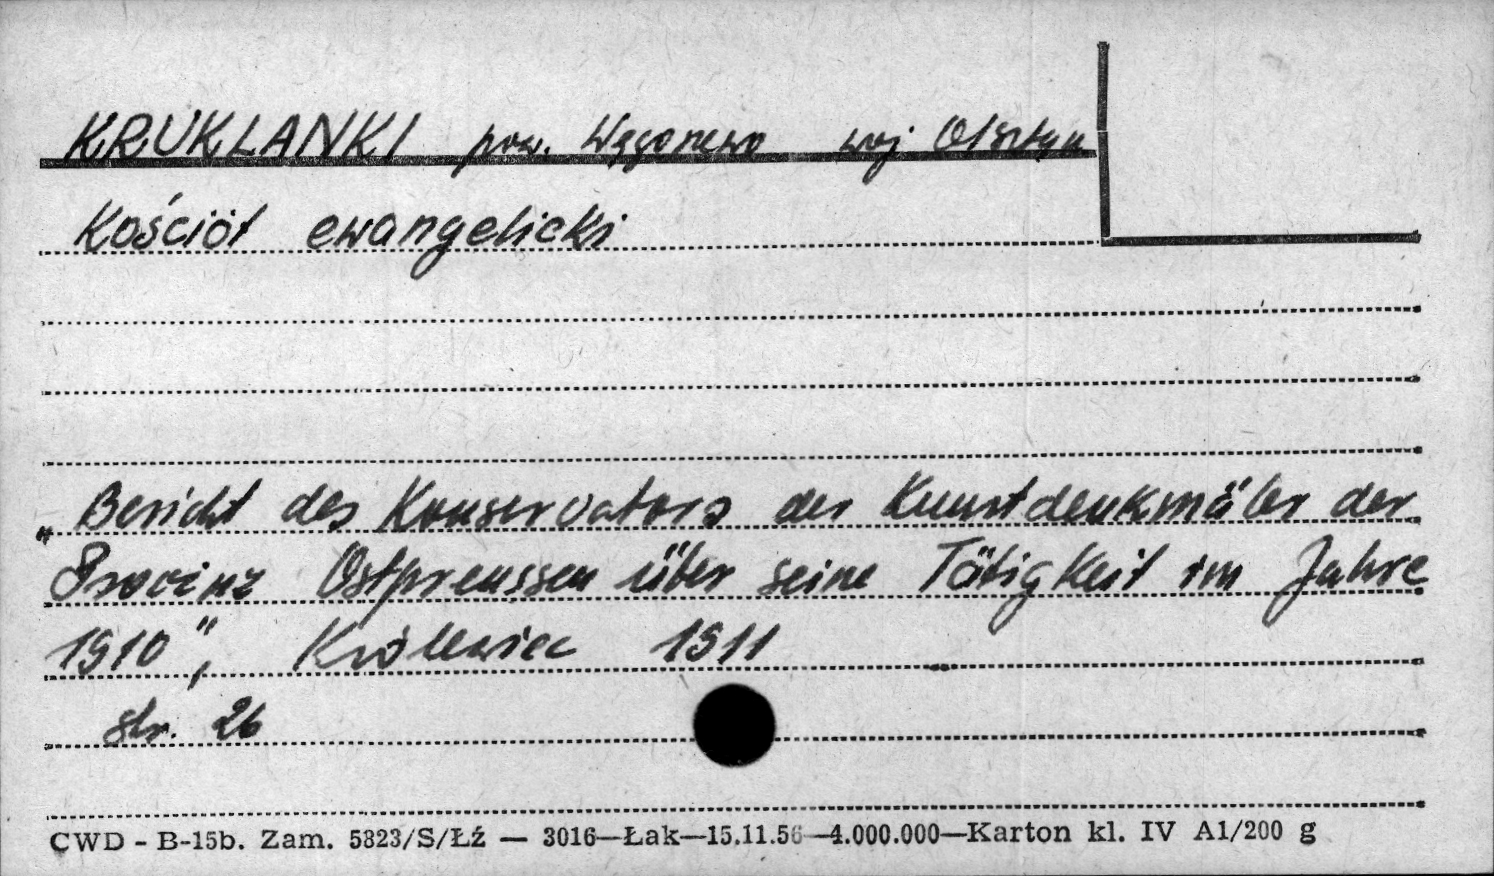 KRUKLANKI pow. Węgorzewo woj Olsztyn
Kościół ewangelicki
"Bericht des Konservators der Kunstdenkmäler der
Provinz Ostpreussen über seine Tätigkeit im Jahre
1910", Królewiec 1911
str. 26
CWD - B-15b. Zam. 5823/S/Łź — 3016—Łak—15.11.56—4.000.000—Karton kl. IV A1/200 g